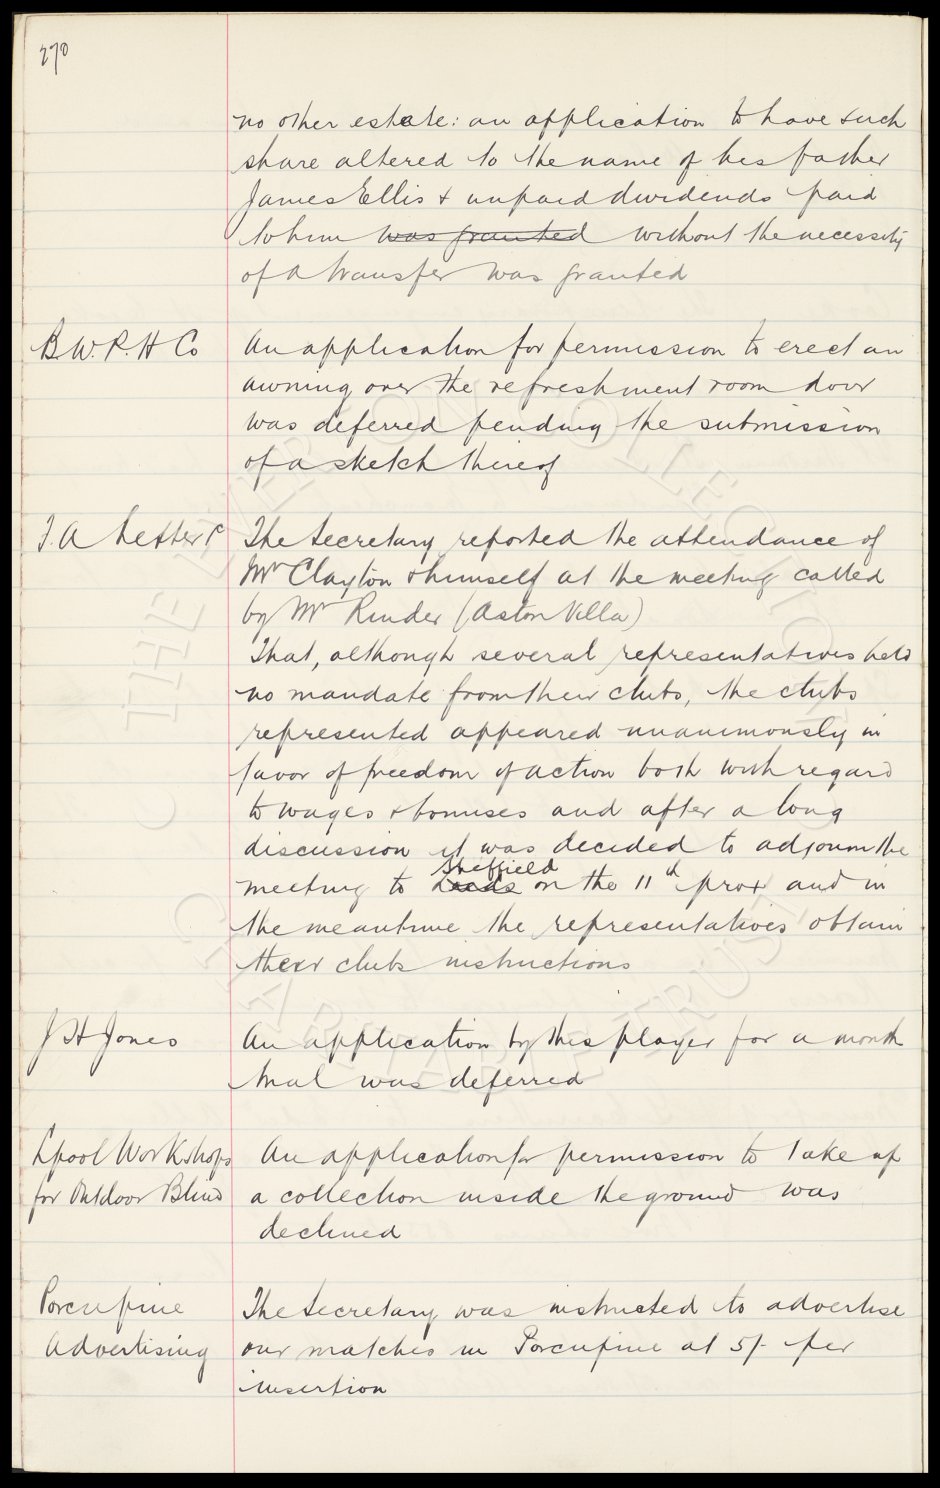 270
no other estate: an application to have such
share altered to the name of his father
James Ellis & unpaid dividends paid
to him was granted without the necessity
of a transfer was granted
B.W.R.H Co
An application for permission to erect an
awning over the refreshment room door
was deferred pending the submission
of a sketch thereof
F.A Letter
The Secretary reported the attendance of
Mr Clayton & himself at the meeting called
by Mr Rinder (Aston Villa)
That, although several representatives held
no mandate from their clubs, the clubs
represented appeared unanimously in
favor of freedom of action both with regard
to wages & bonuses and after a long
discussion it was decided to adjourn the
Sheffield
meeting to Leeds on the 11th prox and in
the meantime the representatives obtain
their clubs instructions
J H Jones
An application by this player for a month
trial was deferred
Lpool Workshops
for Outdoor Blind
An application for permission to take up
a collection inside the ground was
declined
Porcupine
Advertising
The Secretary was instructed to advertise
our matches in Porcupine at 5/- per
insertion
THE EVERTON COLLECTION
CHARITABLE TRUST